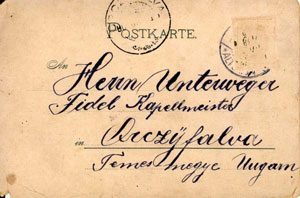 POSTKARTE.
An
Herrn Unterweger
Fidel Kapellmeister
in Orczÿfalva
Temes megye Ungarn